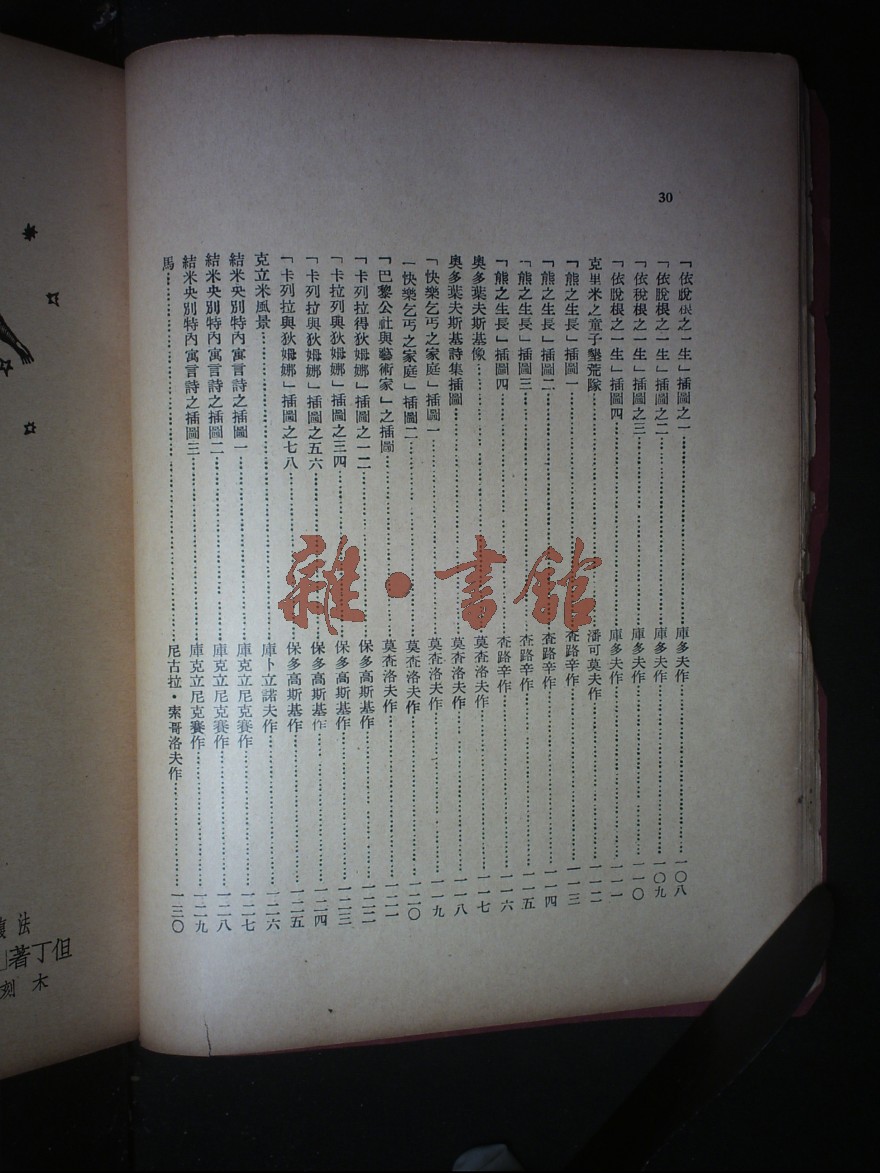 30
「依脫根之一生」插圖之一……庫多夫作……一〇八
「依脫根之一生」插圖之二……庫多夫作……一〇九
「依稅根之一生」插圖之三……庫多夫作……一一〇
「依脫根之一生」插圖四……庫多夫作……一一一
克里米之童子墾荒隊……潘可莫夫作……一一二
「熊之生長」插圖一……查路辛作……一一三
「熊之生長」插圖二……查路辛作……一一四
「熊之生長」插圖三……查路辛作……一一五
「熊之生長」插圖四……查路辛作……一一六
奥多葉夫斯基像……莫查洛夫作……一一七
奥多葉夫斯基詩集插圖……莫查洛夫作……一一八
「快樂乞丐之家庭」插圖一……莫查洛夫作……一一九
「快樂乞丐之家庭」插圖二……莫查洛夫作……一二〇
「巴黎公社與藝術家」之插圖……一二一
「卡列拉得狄姆娜」插圖之一二……保多高斯基作……一二二
「卡拉列與狄姆娜」插圖之三四……保多高斯基作……一二三
「卡列拉與狄姆娜」插圖之五六……保多高斯基作……一二四
「卡列拉與狄姆娜」插圖之七八……保多高斯基作……一二五
克立米風景……庫卜立諾夫作……一二六
結米央別特內寓言詩之插圖一……庫克立尼克賽作……一二七
結米央別特內寓言詩之插圖二……庫克立尼克賽作……一二八
結米央別特內寓言詩之插圖三……庫克立尼克賽作……一二九
馬……尼古拉·索哥洛夫作……一三〇
雜·書館
法
但丁著
木刻